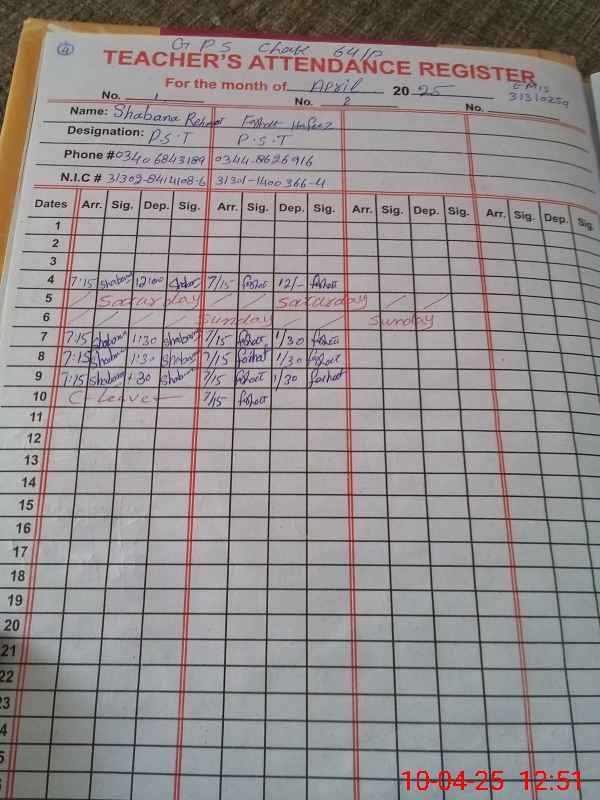 4
G P S Chak 64/P
TEACHER'S ATTENDANCE REGISTER
For the month of April 2025
EMIS
31310259
No. 1 No. 2 No.
Name: Shabana Rehmat Farhat Hafeez
Designation: P.S.T P.S.T
Phone # 03406843189 0344-8626916
N.I.C # 31302-8414108-6 31301-1400366-4
Dates Arr. Sig. Dep. Sig. Arr. Sig. Dep. Sig. Arr. Sig. Dep. Sig. Arr. Sig. Dep. Sig.
1
2
3
4 7:15 Shabana 12:00 Shabana 7/15 farhat 12/- farhat
5 Saturday Saturday
6 Sunday Sunday
7 7:15 Shabana 1:30 Shabana 7/15 farhat 1/30 farhat
8 7:15 Shabana 1:30 Shabana 7/15 farhat 1/30 farhat
9 7:15 Shabana 1:30 Shabana 7/15 farhat 1/30 farhat
10 C-Leave 7/15 farhat
11
12
13
14
15
16
17
18
19
20
21
22
23
4
5
10-04-25 12:51